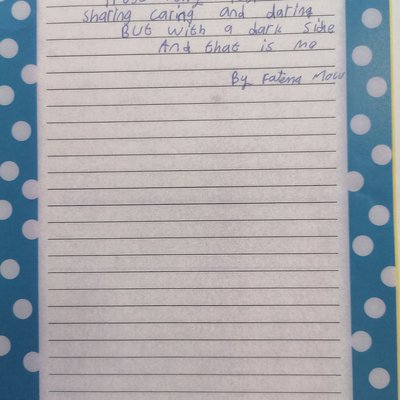 sharing caring and daring
But with a dark side
And that is me
By Fatema